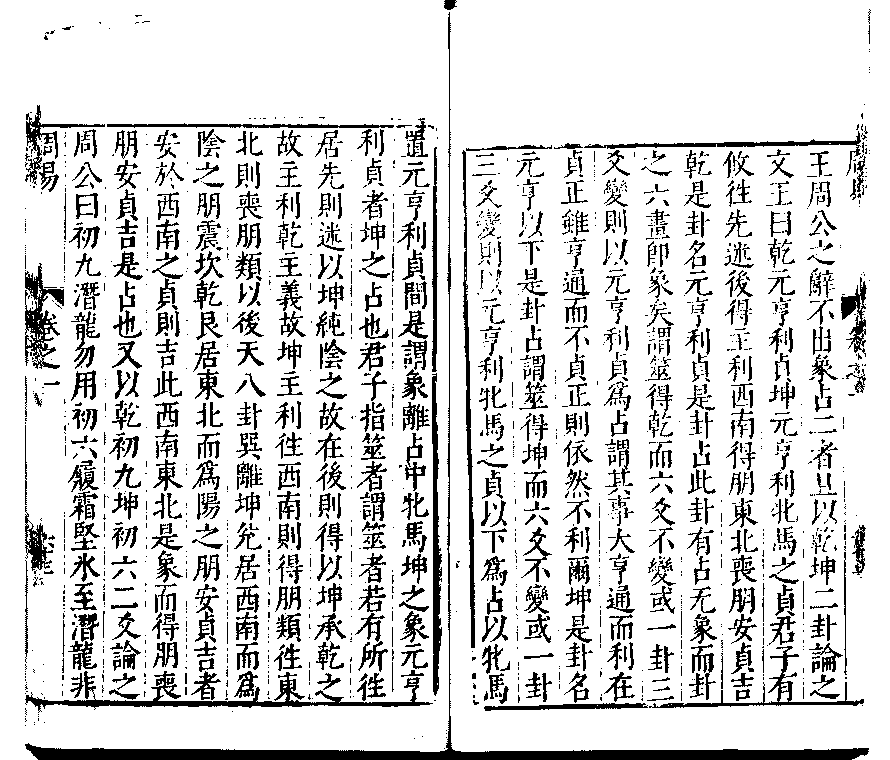 王周公之辭不出象占二者且以乾坤二卦論之
文王曰乾元亨利貞坤元亨利牝馬之貞君子有
攸徃先迷後得主利西南得朋東北喪朋安貞吉
乾是卦名元亨利貞是卦占此卦有占无象而卦
之六畫卽象矣謂筮得乾而六爻不變或一卦三
爻變則以元亨利貞爲占謂其事大亨通而利在
貞正雖亨通而不貞正則依然不利爾坤是卦名
元亨以下是卦占謂筮得坤而六爻不變或一卦
三爻變則以元亨利牝馬之貞以下爲占以牝馬
置元亨利貞間是謂象離占中牝馬坤之象元亨
利貞者坤之占也君子指筮者謂筮者若有所徃
居先則迷以坤純陰之故在後則得以坤承乾之
故主利乾主義故坤主利徃西南則得朋類徃東
北則喪朋類以後天八卦巽離坤兌居西南而爲
陰之朋震坎乾艮居東北而爲陽之朋安貞吉者
安於西南之貞則吉此西南東北是象而得朋喪
朋安貞吉是占也又以乾初九坤初六二爻論之
周公曰初九潛龍勿用初六履霜堅氷至潛龍非
周易
卷之一